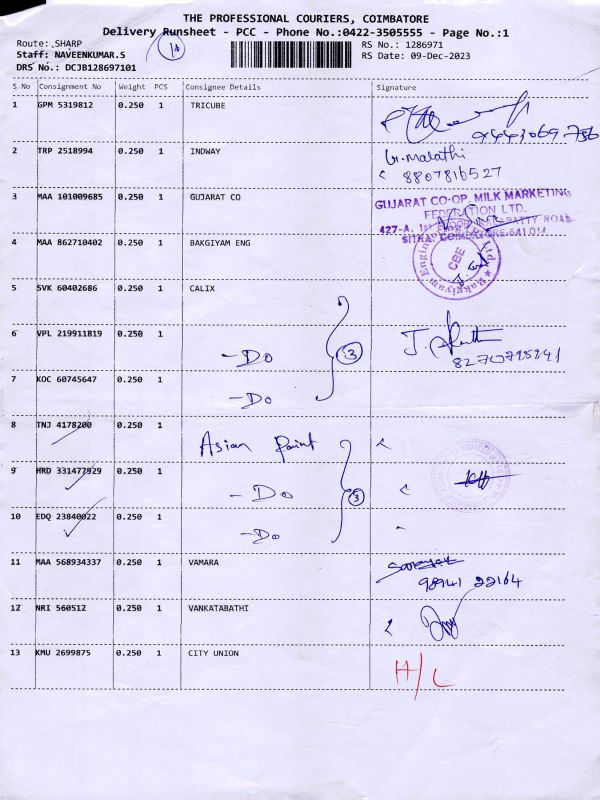 THE PROFESSIONAL COURIERS, COIMBATORE
Delivery Runsheet - PCC - Phone No.:0422-3505555 - Page No.:1
Route: SHARP
Staff: NAVEENKUMAR.S
DRS No.: DCJB128697101
RS No.: 1286971
RS Date: 09-Dec-2023
S No Consignment No Weight PCS Consignee Details Signature
1 GPM 5319812 0.250 1 TRICUBE
2 TRP 2518994 0.250 1 INDWAY G. Malathi
8807816527
3 MAA 101009685 0.250 1 GUJARAT CO GUJARAT CO-OP. MILK MARKETING
FEDERATION LTD.
427-A, 1st FLOOR ROAD
4 MAA 862710402 0.250 1 BAKGIYAM ENG
CBE
5 SVK 60402686 0.250 1 CALIX
6 VPL 219911819 0.250 1 - Do 3
7 KOC 60745647 0.250 1 - Do
8 TNJ 4178200 0.250 1 Asian Paint
9 HRD 331477929 0.250 1 - Do 3
10 EDQ 23840022 0.250 1 - Do
11 MAA 568934337 0.250 1 VAMARA
98941 22164
12 NRI 560512 0.250 1 VANKATABATHI
13 KMU 2699875 0.250 1 CITY UNION H/L